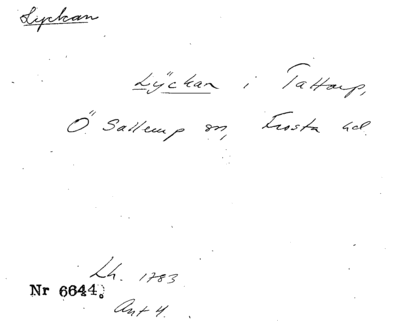 Lyckan
Lyckan i Tattarp,
Ö Sallerup sn, Frosta hd.
Lh. 1783
Nr 6644.
Ant 4.